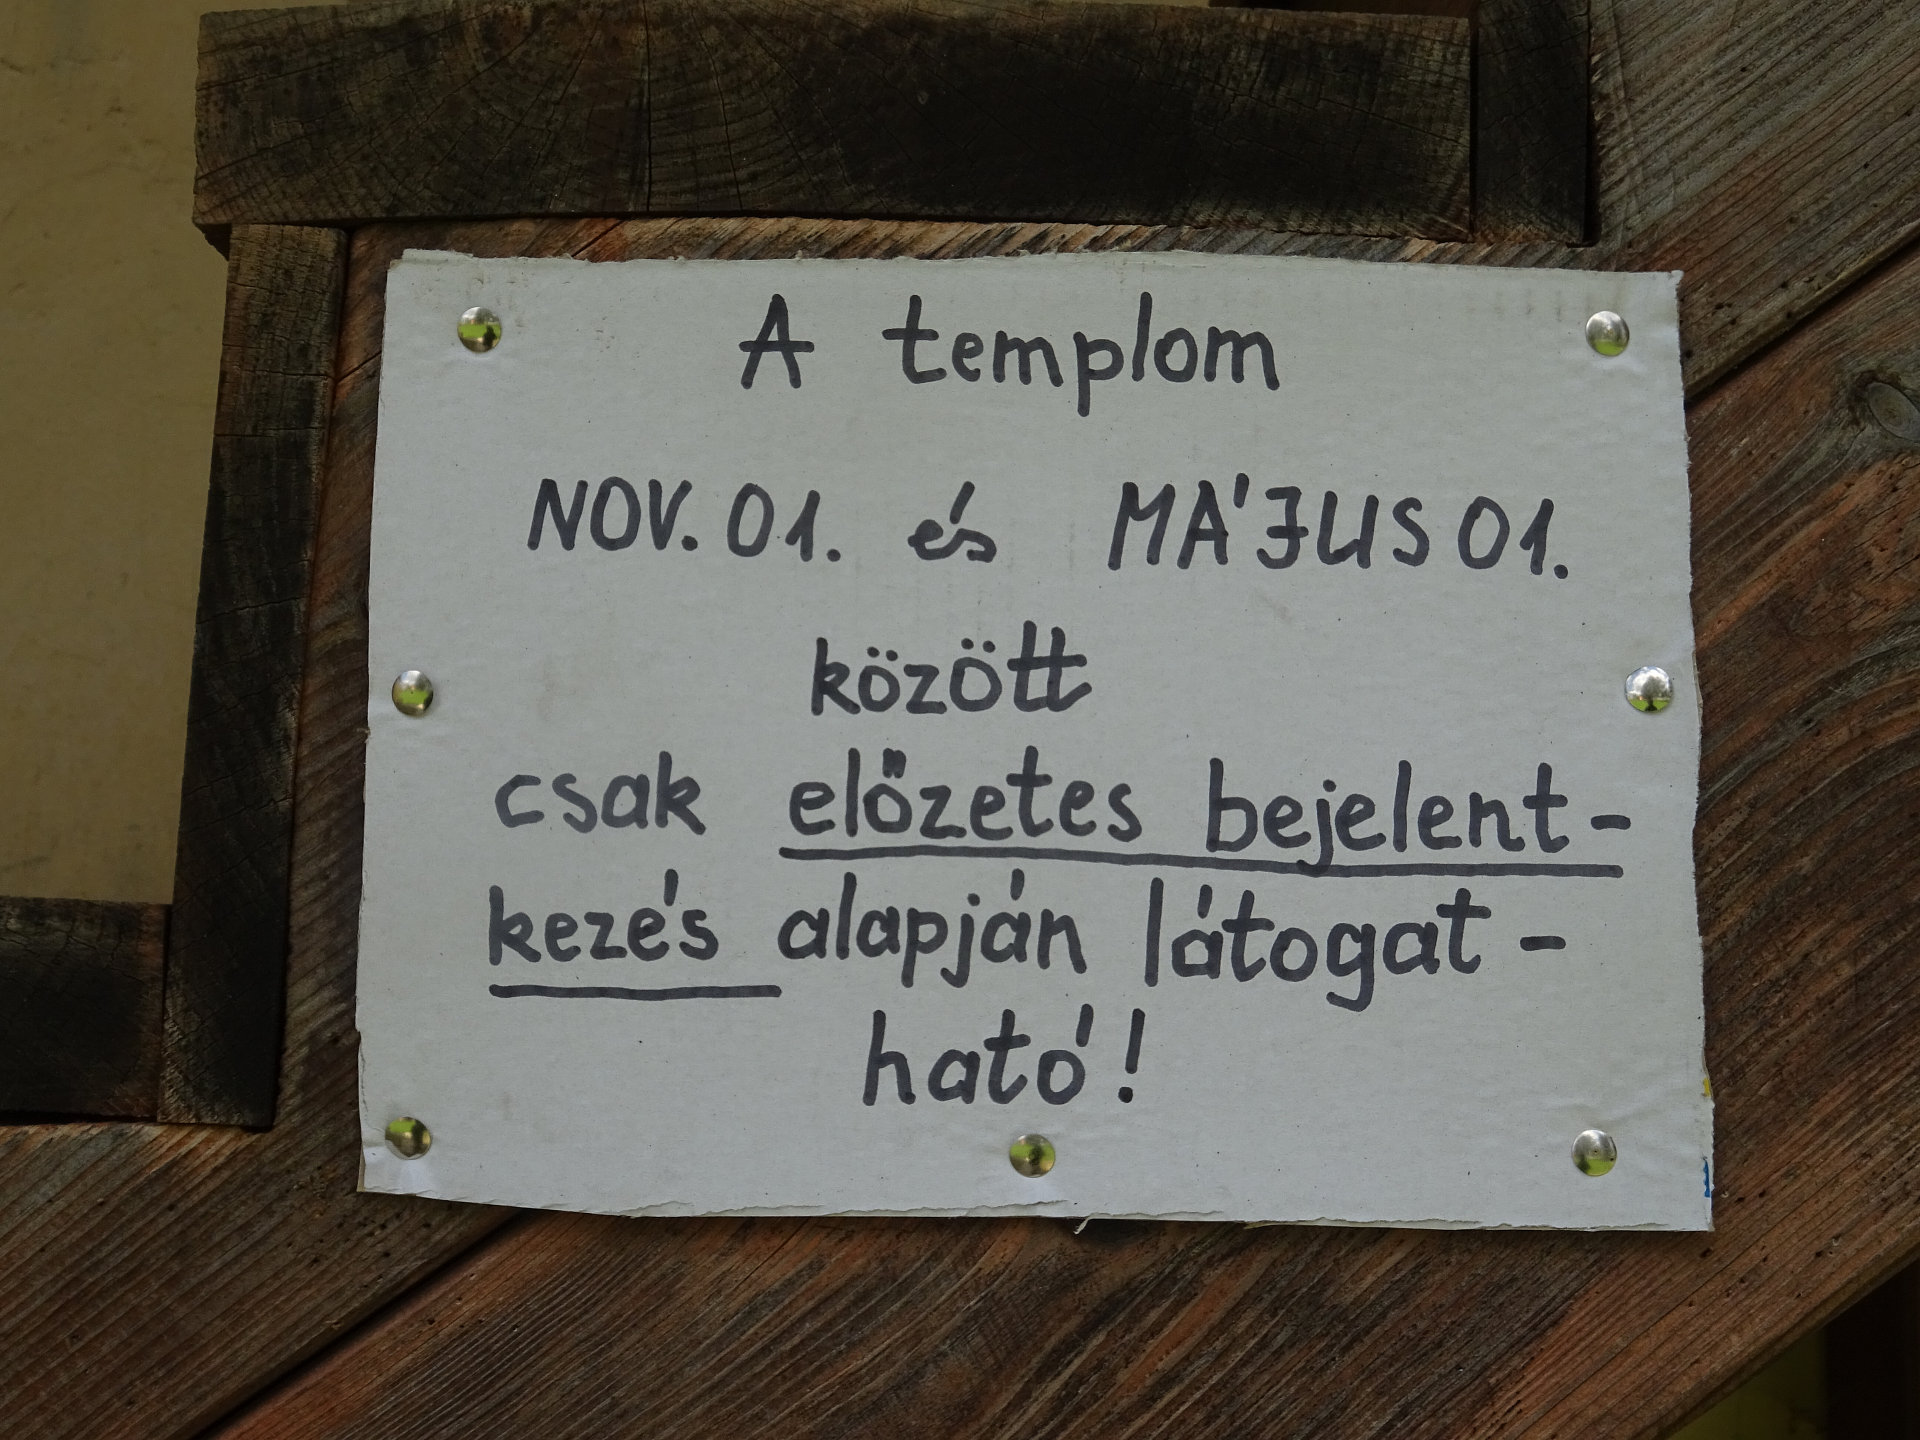 A templom
NOV. 01. és MÁJUS 01.
között
csak előzetes bejelent-
kezés alapján látogat-
ható!